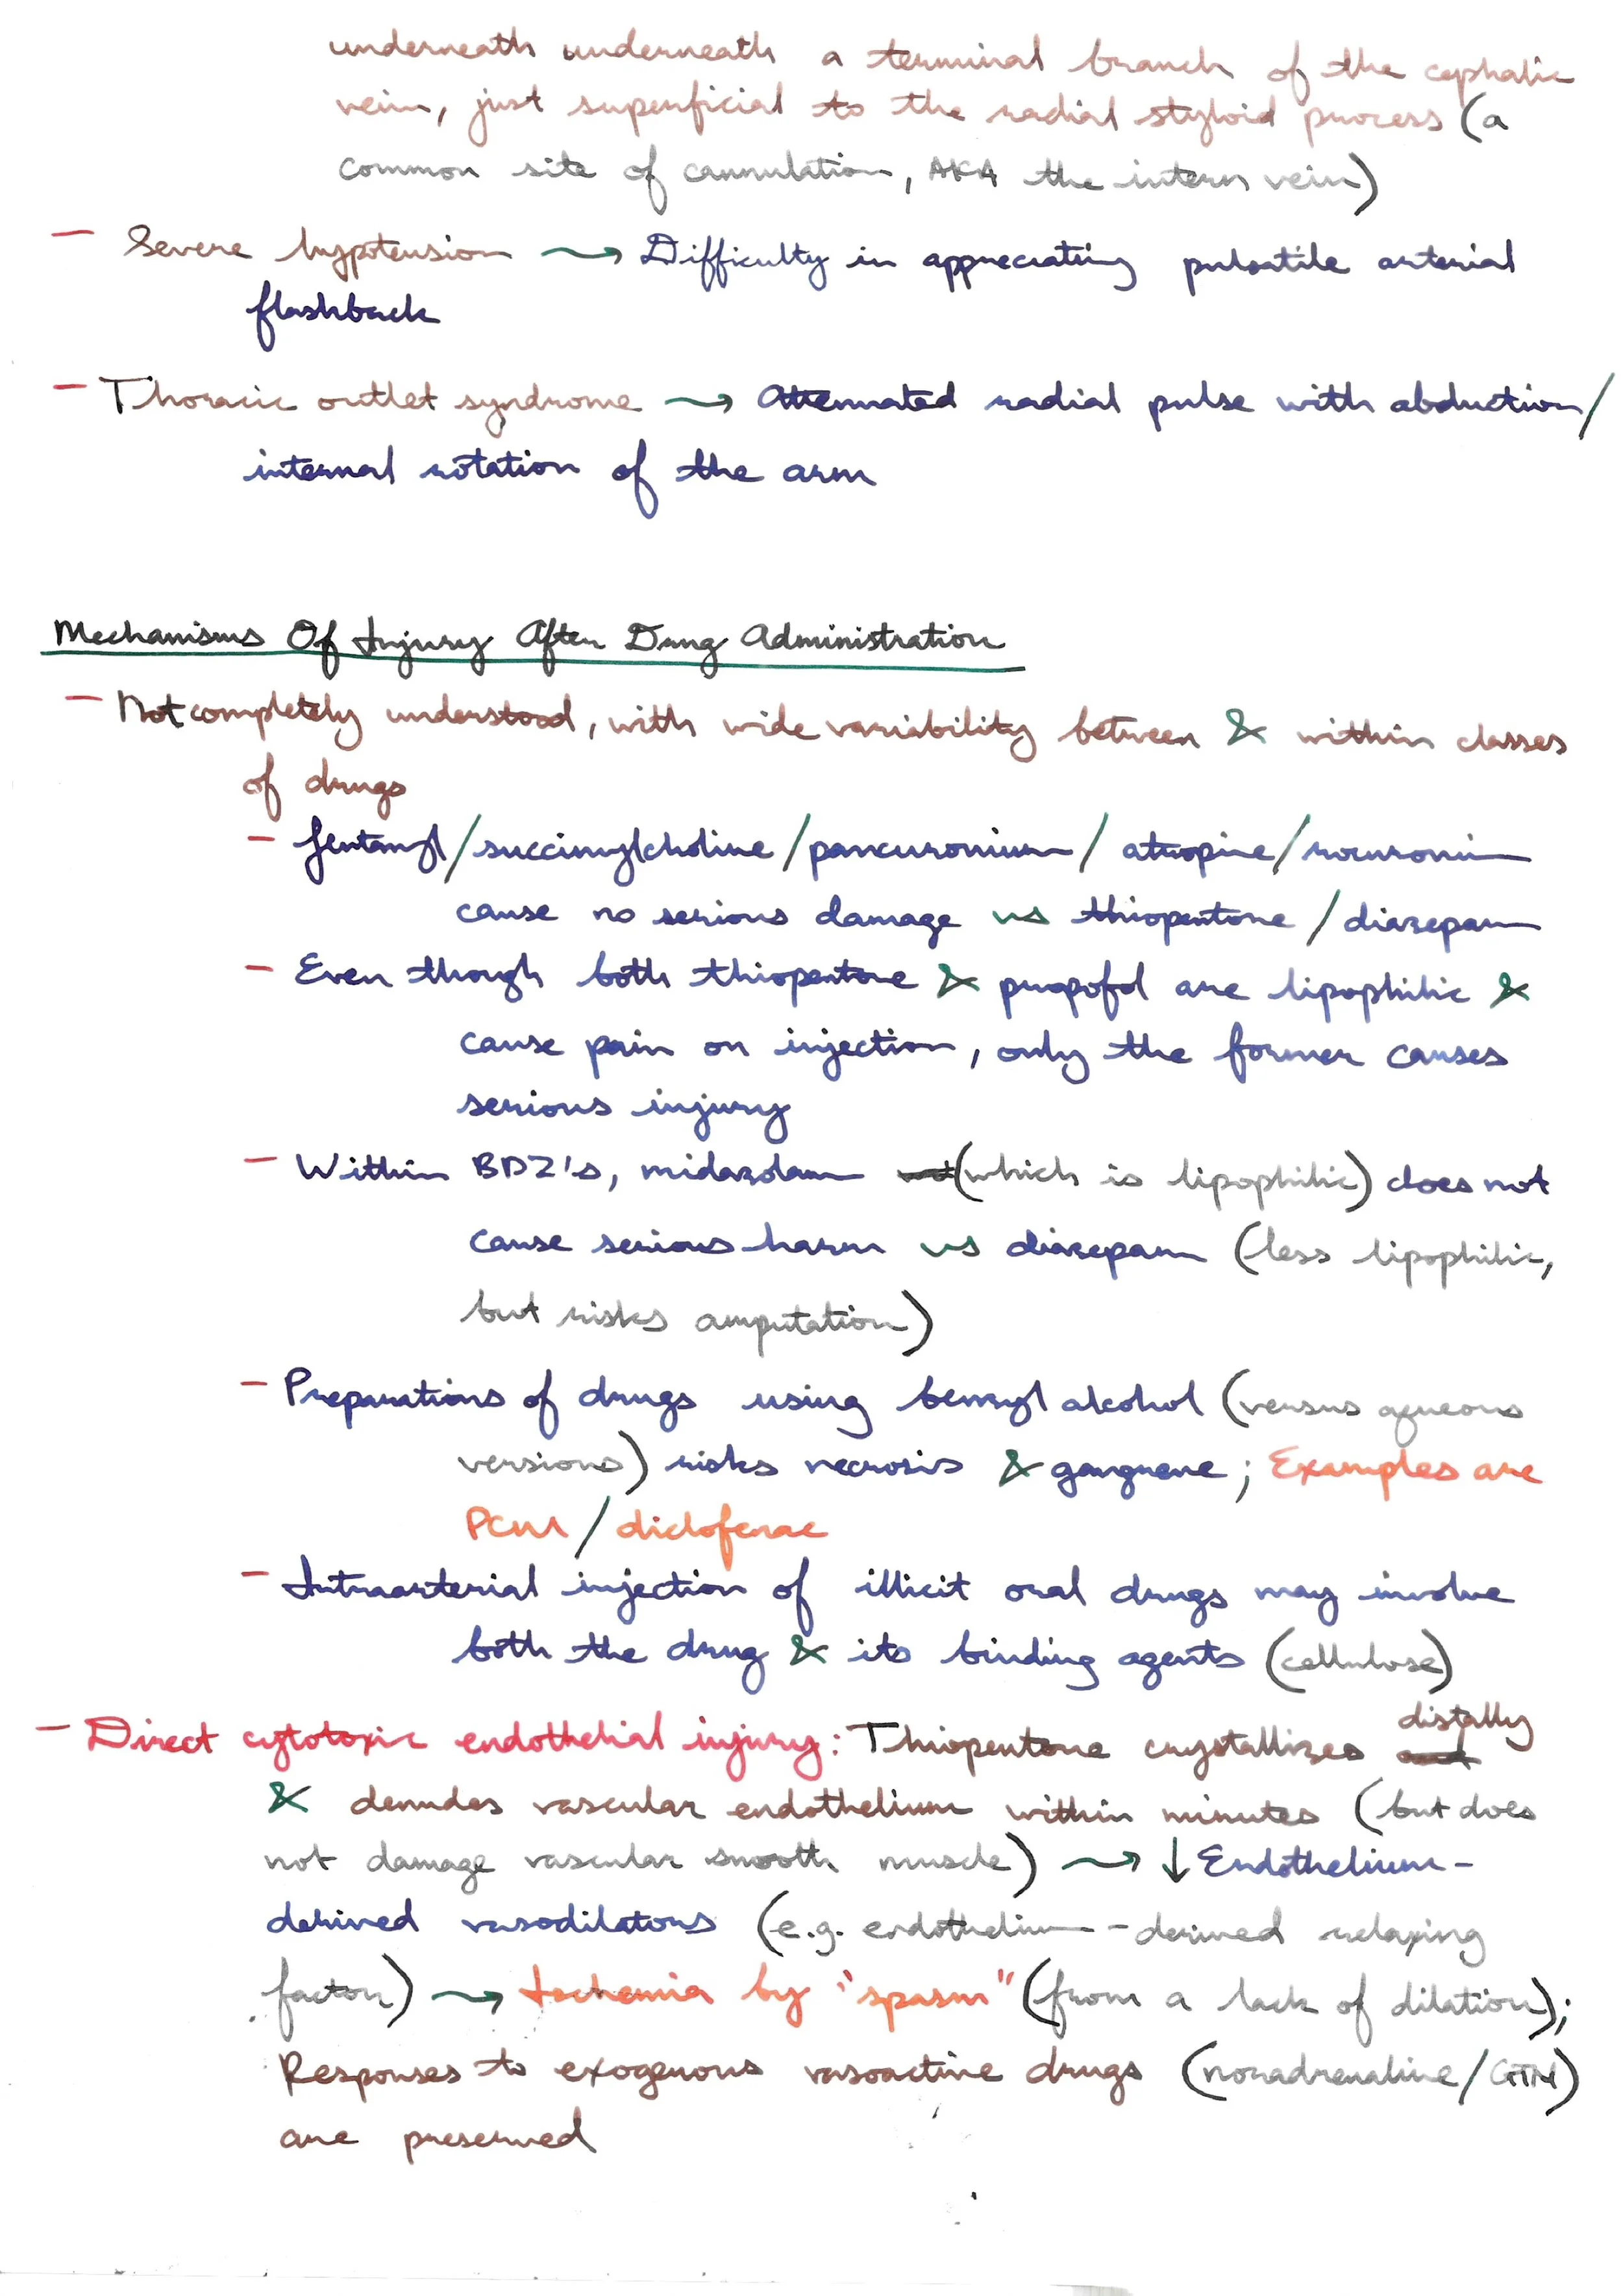 underneath underneath a terminal branch of the cephalic
vein, just superficial to the radial styloid process (a
common site of cannulation, AKA the intern vein)
- Severe hypotension → Difficulty in appreciating pulsatile arterial
flashback
- Thoracic outlet syndrome → Attenuated radial pulse with abduction/
internal rotation of the arm
Mechanisms Of Injury After Drug Administration
- Not completely understood, with wide variability between & within classes
of drugs
- fentanyl/succinylcholine/pancuronium/atropine/rocuronium
cause no serious damage vs thiopentone/diazepam
- Even though both thiopentone & propofol are lipophilic &
cause pain on injection, only the former causes
serious injury
- Within BDZ's, midazolam (which is lipophilic) does not
cause serious harm vs diazepam (less lipophilic,
but risks amputation)
- Preparations of drugs using benzyl alcohol (versus aqueous
versions) risks necrosis & gangrene; Examples are
PCM/diclofenac
- Intraarterial injection of illicit oral drugs may involve
both the drug & its binding agents (cellulose)
- Direct cytotoxic endothelial injury: Thiopentone crystallizes distally
& denudes vascular endothelium within minutes (but does
not damage vascular smooth muscle) → ↓ Endothelium-
derived vasodilators (e.g. endothelium-derived relaxing
factor) → Ischemia by "spasm" (from a lack of dilation);
Responses to exogenous vasoactive drugs (noradrenaline/GTN)
are preserved